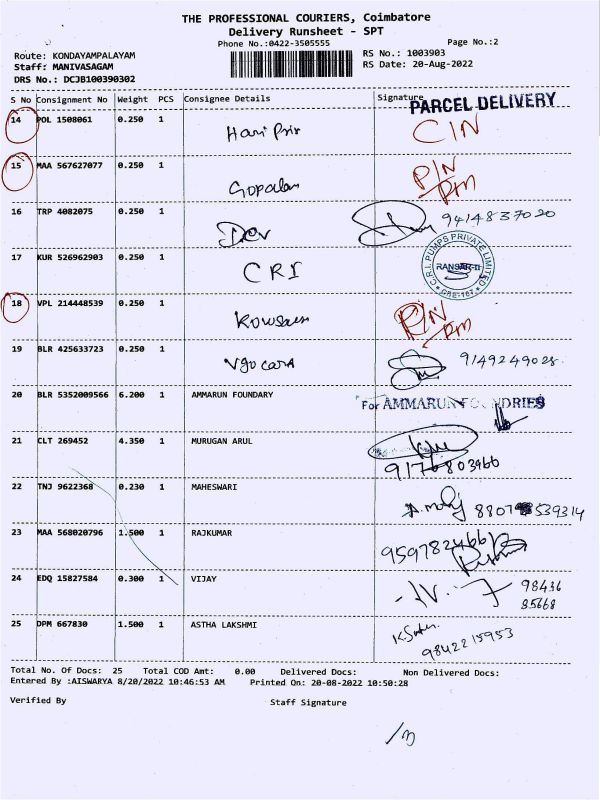 THE PROFESSIONAL COURIERS, Coimbatore
Delivery Runsheet - SPT
Phone No.:0422-3505555
Page No.:2
Route: KONDAYAMPALAYAM
RS No.: 1003903
Staff: MANIVASAGAM
RS Date: 20-Aug-2022
DRS No.: DCJB100390302
S No Consignment No Weight PCS Consignee Details Signature
PARCEL DELIVERY
14 POL 1508061 0.250 1 Hari CIN
15 MAA 567627077 0.250 1 Gopalan P/N
16 TRP 4082075 0.250 1 Dev 9414837020
17 KUR 526962903 0.250 1 CRI
C.R.I. PUMPS PRIVATE LIMITED
18 VPL 214448539 0.250 1 P/N
19 BLR 425633723 0.250 1 9149249028
20 BLR 5352009566 6.200 1 AMMARUN FOUNDARY For AMMARUN FOUNDRIES
21 CLT 269452 4.350 1 MURUGAN ARUL
22 TNJ 9622368 0.230 1 MAHESWARI
23 MAA 568020796 1.500 1 RAJKUMAR
24 EDQ 15827584 0.300 1 VIJAY 98436
25 DPM 667830 1.500 1 ASTHA LAKSHMI 9842215953
Total No. Of Docs: 25 Total COD Amt: 0.00 Delivered Docs: Non Delivered Docs:
Entered By :AISWARYA 8/20/2022 10:46:53 AM Printed On: 20-08-2022 10:50:28
Verified By Staff Signature